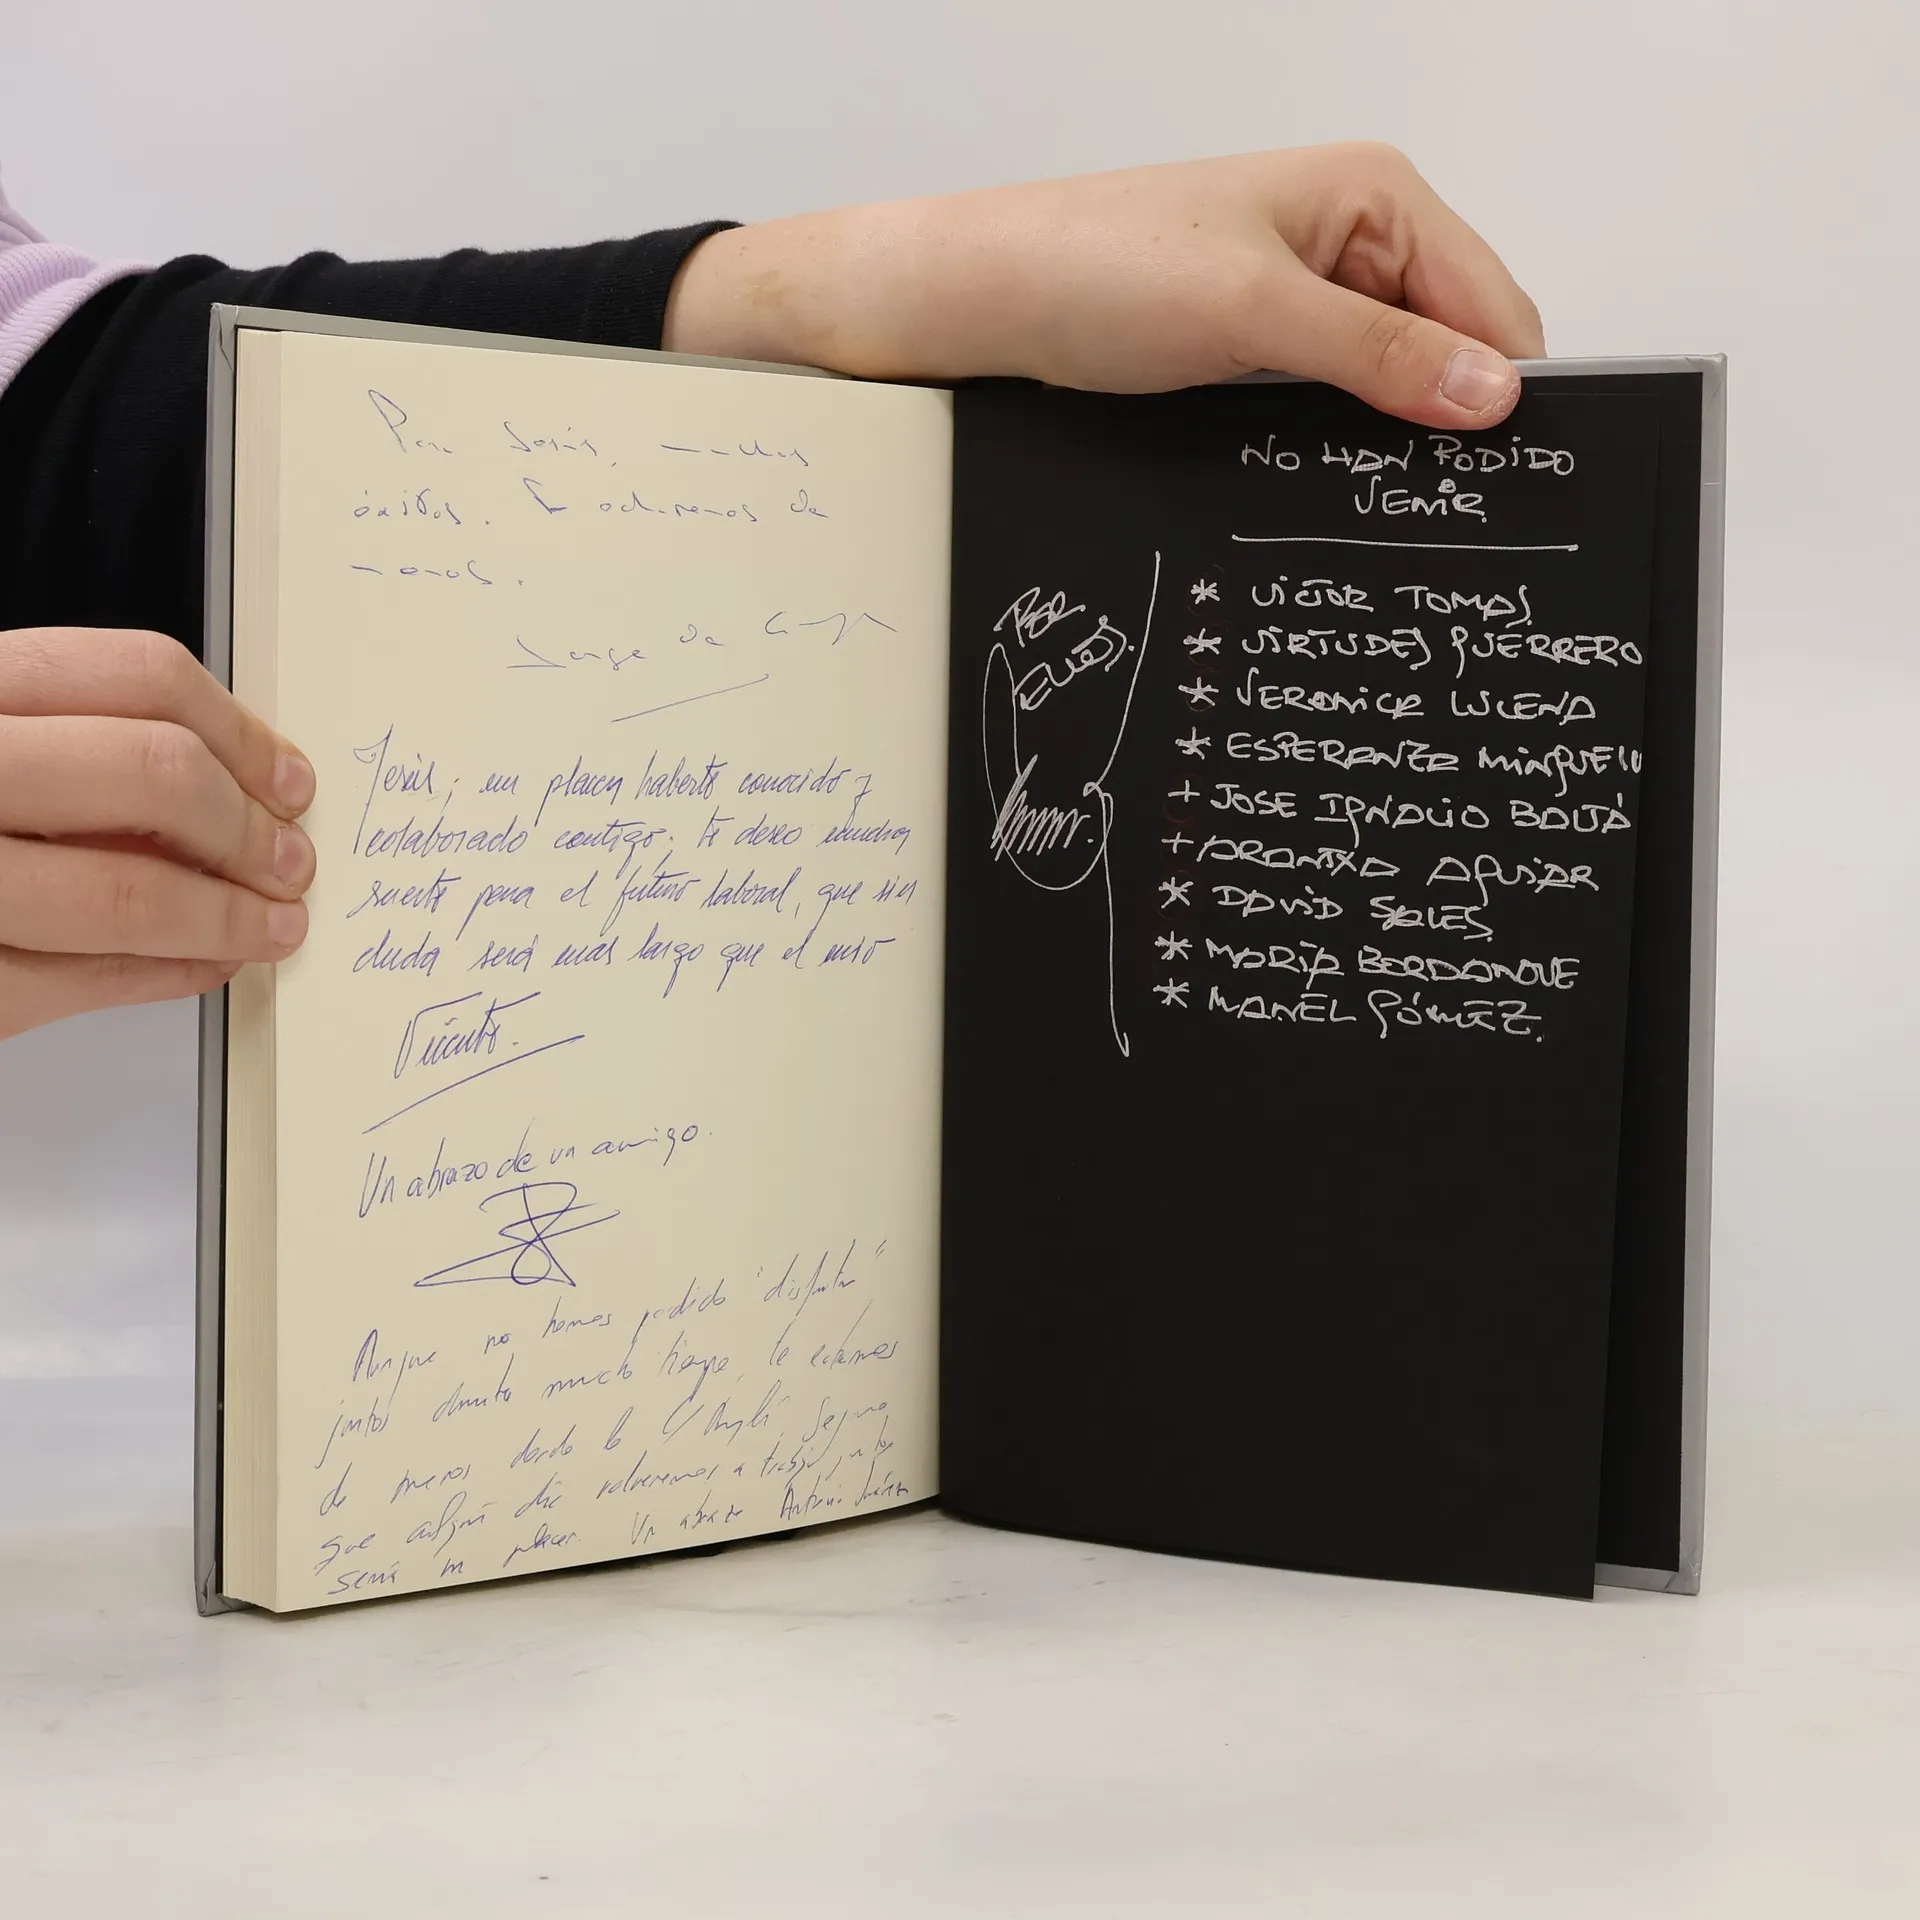 Para Jesús, muchos
éxitos. Te echaremos de
menos.
Jorge de
Jesús; un placer haberte conocido y
colaborado contigo. Te deseo mucha
suerte para el futuro laboral, que sin
duda será más largo que el mío
Vicente.
Un abrazo de un amigo.
Aunque no hemos podido "disfrutar"
juntos durante mucho tiempo, te echamos
de menos desde la C/ Seguro
que algún día volveremos a trabajar juntos
será un placer. Un abrazo Antonio Juárez
NO HAN PODIDO
VENIR
POR
ELLOS.
* VICTOR TOMAS
* VIRTUDES GUERRERO
* VERONICA LUCENA
* ESPERANZA
+ JOSE IGNACIO
+ ARANTXA AGUIAR
* DAVID SALES
* MARIA BORDANOVE
* MANEL GÓMEZ.